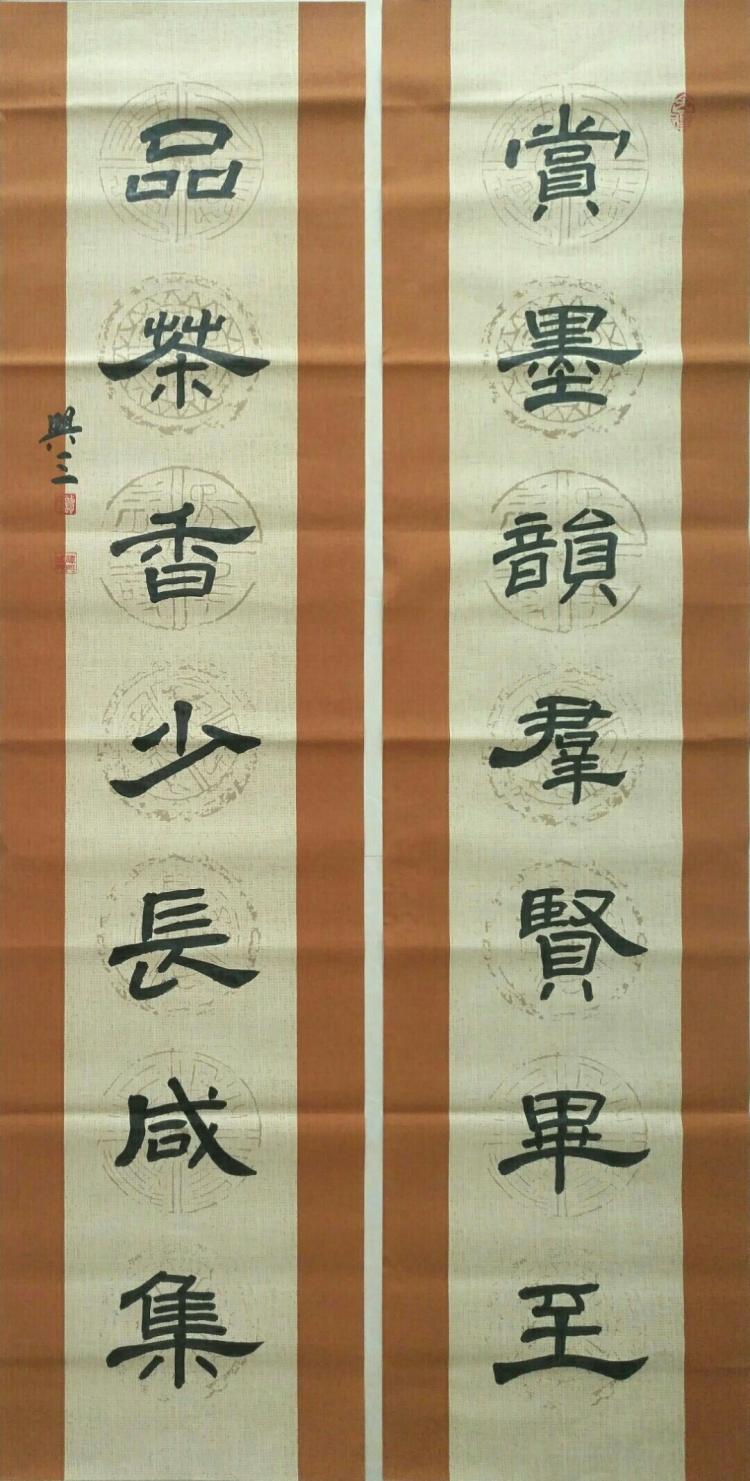 賞墨韻羣賢畢至
品茶香少長咸集
興三